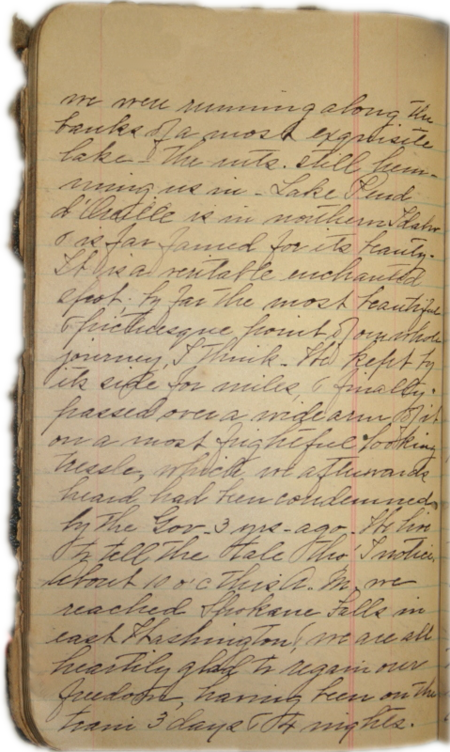 we were running along the
banks of a most exquisite
lake & the mts. still hem-
ming us in - Lake Pend
d'Oreille is in northern Idaho
& is far famed for its beauty.
It is a veritable enchanted
spot. by far the most beautiful
& picturesque point of our whole
journey, I think - We kept by
its side for miles & finally
passed over a wide arm of it
on a most frightful looking
tressle, which we afterwards
heard had been condemned
by the Gov. 3 yrs - ago - We live
to tell the tale tho' I notice.
About 10 o c this A. M. we
reached Spokane Falls in
east Washington, we are all
heartily glad to regain our
freedom, having been on the
train 3 days & 4 nights.